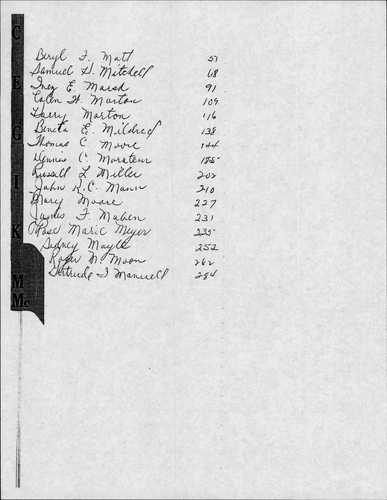 C
E
G
I
K
M
Mc
Beryl F. Matt 57
Samuel G. Mitchell 68
Inez E. Marsh 91
H. Morton 109
Morton 116
Beneta E. Mildred 138
Thomas C Moore 144
Dennis C. Morateur 185
Russell L Miller 202
John R.C. Mann 210
Mary Moore 227
James F. Maben 231
Rose Marie Meyer 235
Sidney Mayle 252
Roger W. Moon 262
Gertrude I Manwell 284